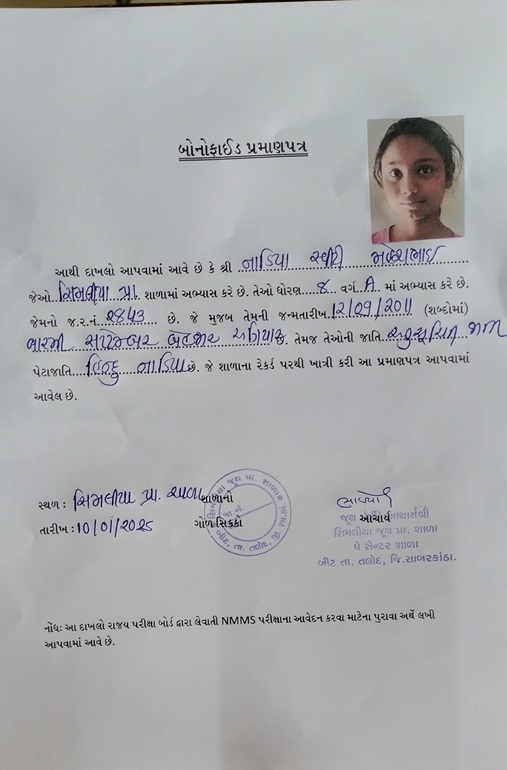 બોનોફાઈડ પ્રમાણપત્ર
આથી દાખલો આપવામાં આવે છે કે શ્રી નાડિયા સ્વીટી મહેશભાઇ
જેઓ સિમલીયા પ્રા. શાળામાં અભ્યાસ કરે છે. તેઓ ધોરણ ૮ વર્ગ A માં અભ્યાસ કરે છે.
જેમનો જ.ર.નં ૨૪૫૩ છે. જે મુજબ તેમની જન્મતારીખ 12/09/2011 (શબ્દોમાં)
બારમી સપ્ટેમ્બર બેહજાર અગિયાર છે. તેમજ તેઓની જાતિ અનુસૂચિત
પેટાજાતિ હિન્દુ નાડિયા છે. જે શાળાના રેકર્ડ પરથી ખાત્રી કરી આ પ્રમાણપત્ર આપવામાં
આવેલ છે.
સ્થળ : સિમલીયા પ્રા. શાળા
તારીખ : 10/01/2025
શાળાનો
ગોળ સિક્કો
આચાર્ય
આચાર્યશ્રી
સિમલીયા જૂથ પ્રા. શાળા
પે સેન્ટર શાળા
બીટ તા. તલોદ, જિ.સાબરકાંઠા.
નોંધઃ આ દાખલો રાજ્ય પરીક્ષા બોર્ડ દ્વારા લેવાતી NMMS પરીક્ષાના આવેદન કરવા માટેના પુરાવા અર્થે લખી
આપવામાં આવે છે.